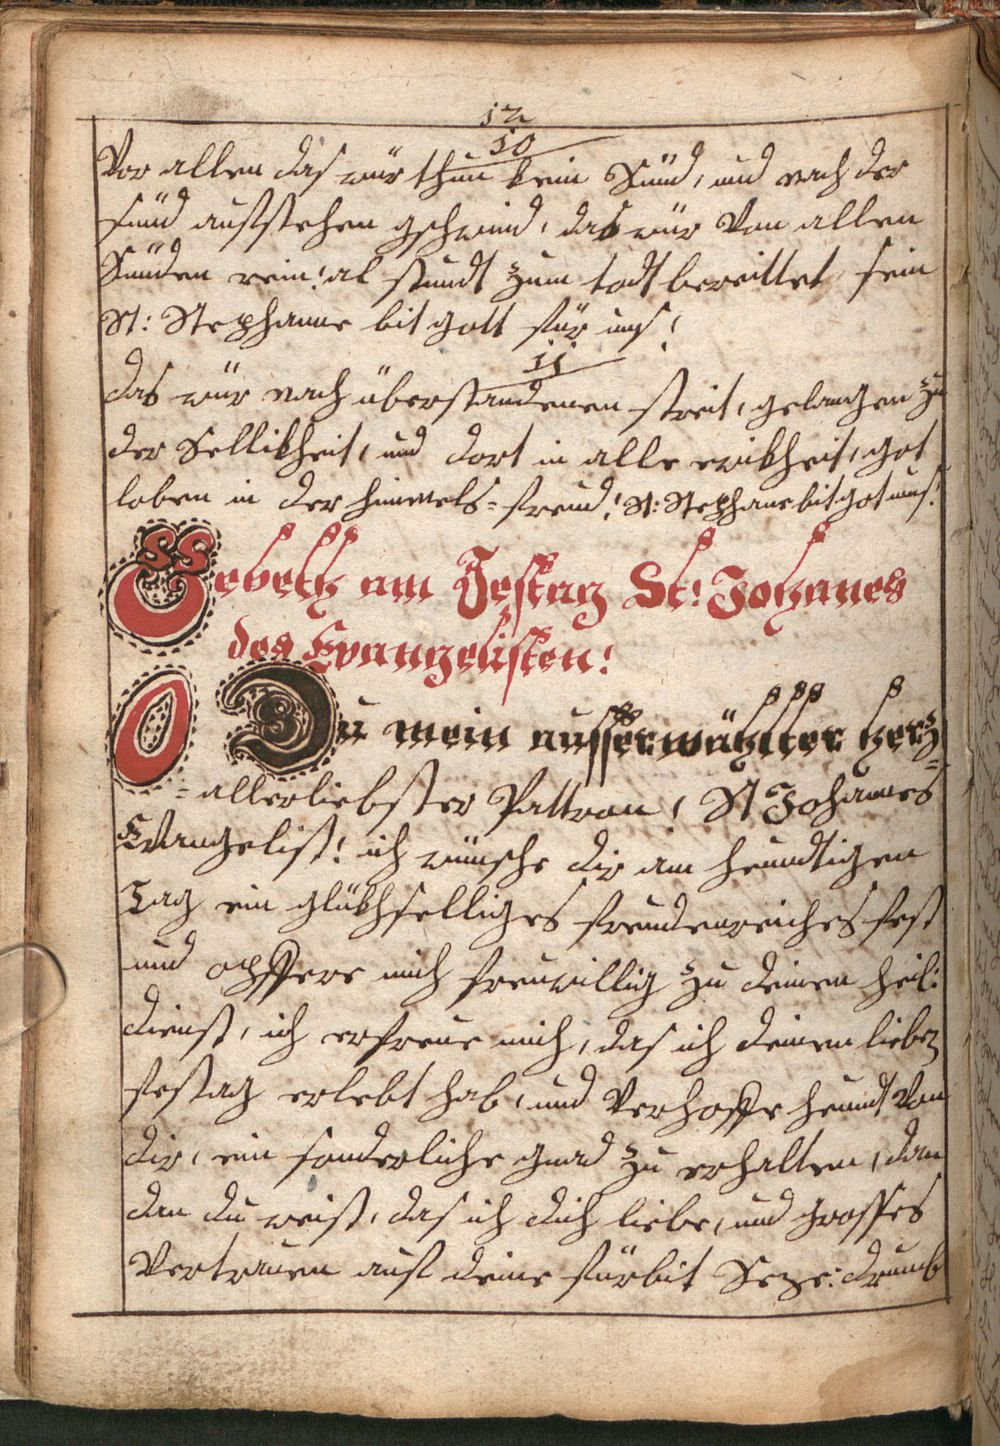 12
10
Vor allen das wür thun kein Sünd, und nach der
sünd aufstehen gschwind, das wür Von allen
Sünden rein! al stundt zum todt bereittet sein
St: Stephanne bit gott für uns!
11
das wür nach überstandenen streit, gelangen zu
der Sellikheit, und dort in alle ewikheit, got
loben in der himmels=freud! St: Stephane bit got uns!
Gebeth am Festag St: Johannes
des Evangelisten!
O Du mein ausserwählter herz=
=allerliebster Pattron! St Johannes
Evangelist! ich wünsche dir am heundtigen
Tag ein glükhselliges freudenreiches fest
und opffere mich freuwillig zu deinen heil:
dienst, ich erfreue mich, das ich deinen lieben
festag erlebt hab, und Verhoffe heundt Von
dir, ein sonderliche gnad zu erhalten, dan
dan du weist, das ich dich liebe, und grosses
Vertrauen auf deine fürbit Seze: drumb